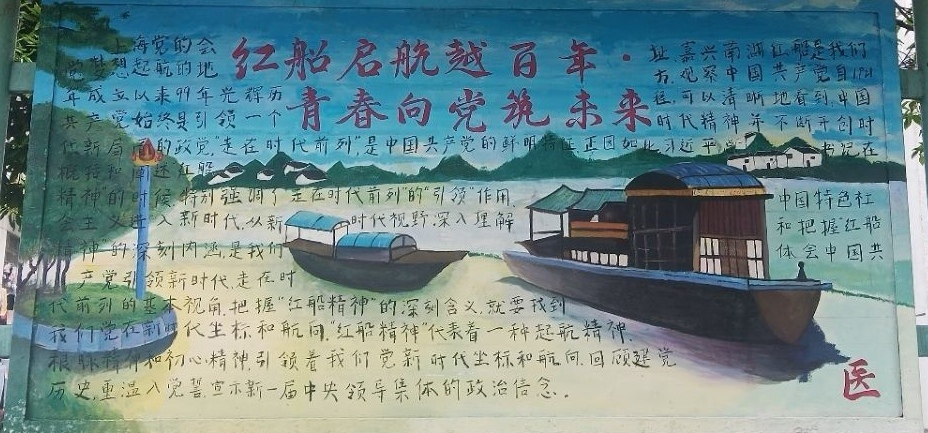 红船启航越百年·
青春向党筑未来
上海党的会址、嘉兴南湖红船是我们
党梦想起航的地方.观察中国共产党自1921
年成立以来99年光辉历程,可以清晰地看到,中国
共产党始终是引领一个时代精神并不断开创时
代新局面的政党"走在时代前列"是中国共产党的鲜明特征正因如此习近平 书记在
概括和阐述红船
精神"的时候特别强调了"走在时代前列"的"引领"作用. 中国特色社
会主义进入新时代.从新 时代视野.深入理解 和把握红船
精神"的深刻内涵是我们 体会中国共
产党引领新时代.走在时
代前列的基本视角.把握"红船精神"的深刻含义.就要找到
我们党在新时代坐标和航向."红船精神"代表着一种起航精神.
根脉精神和初心精神.引领着我们党新时代坐标和航向.回顾建党
历史.重温入党誓.宣示新一届中央领导集体的政治信念。
医